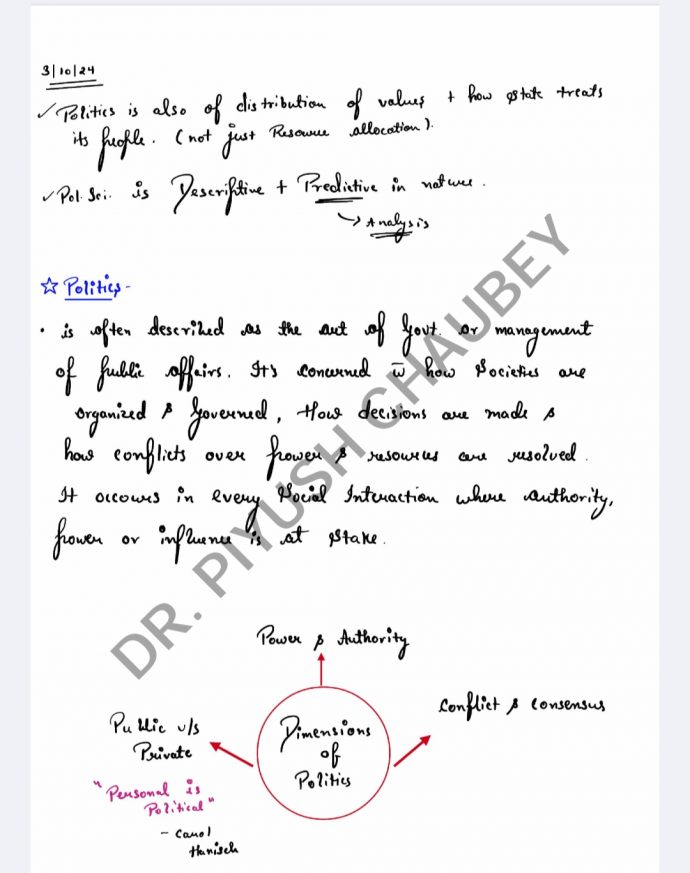 3/10/24
✓ Politics is also of distribution of values + how state treats
its people. (not just Resource allocation).
✓ Pol. Sci. is Descriptive + Predictive in nature.
↳ Analysis
☆ Politics -
• is often described as the act of Govt. or management
of public affairs. It's concerned w̅ how Societies are
organized & Governed, How decisions are made &
how conflicts over power & resources are resolved.
It occours in every Social Interaction where authority,
power or influence is at stake.
DR. PIYUSH CHAUBEY
Power & Authority
Conflict & consensus
Public v/s
Private
"Personal is
Political"
- Carol
Hanisch
Dimensions
of
Politics